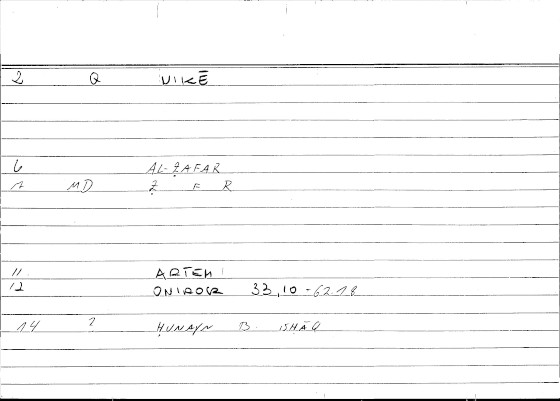 2 Q NIKĒ
6 AL-ẒAFAR
7 MD Ẓ F R
11 ARTEMI
12 ONIROCR 33,10-62.18
14 2 ḤUNAYN B. ISḤĀQ